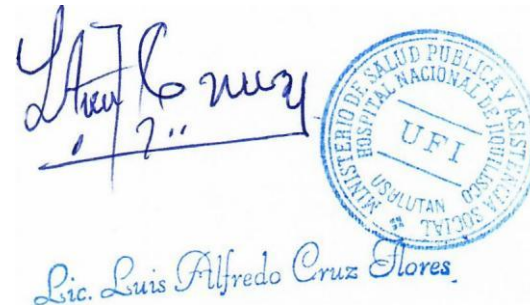 MINISTERIO DE SALUD PUBLICA Y ASISTENCIA SOCIAL
HOSPITAL NACIONAL DE JIQUILISCO
UFI
USULUTAN
Lic. Luis Alfredo Cruz Flores